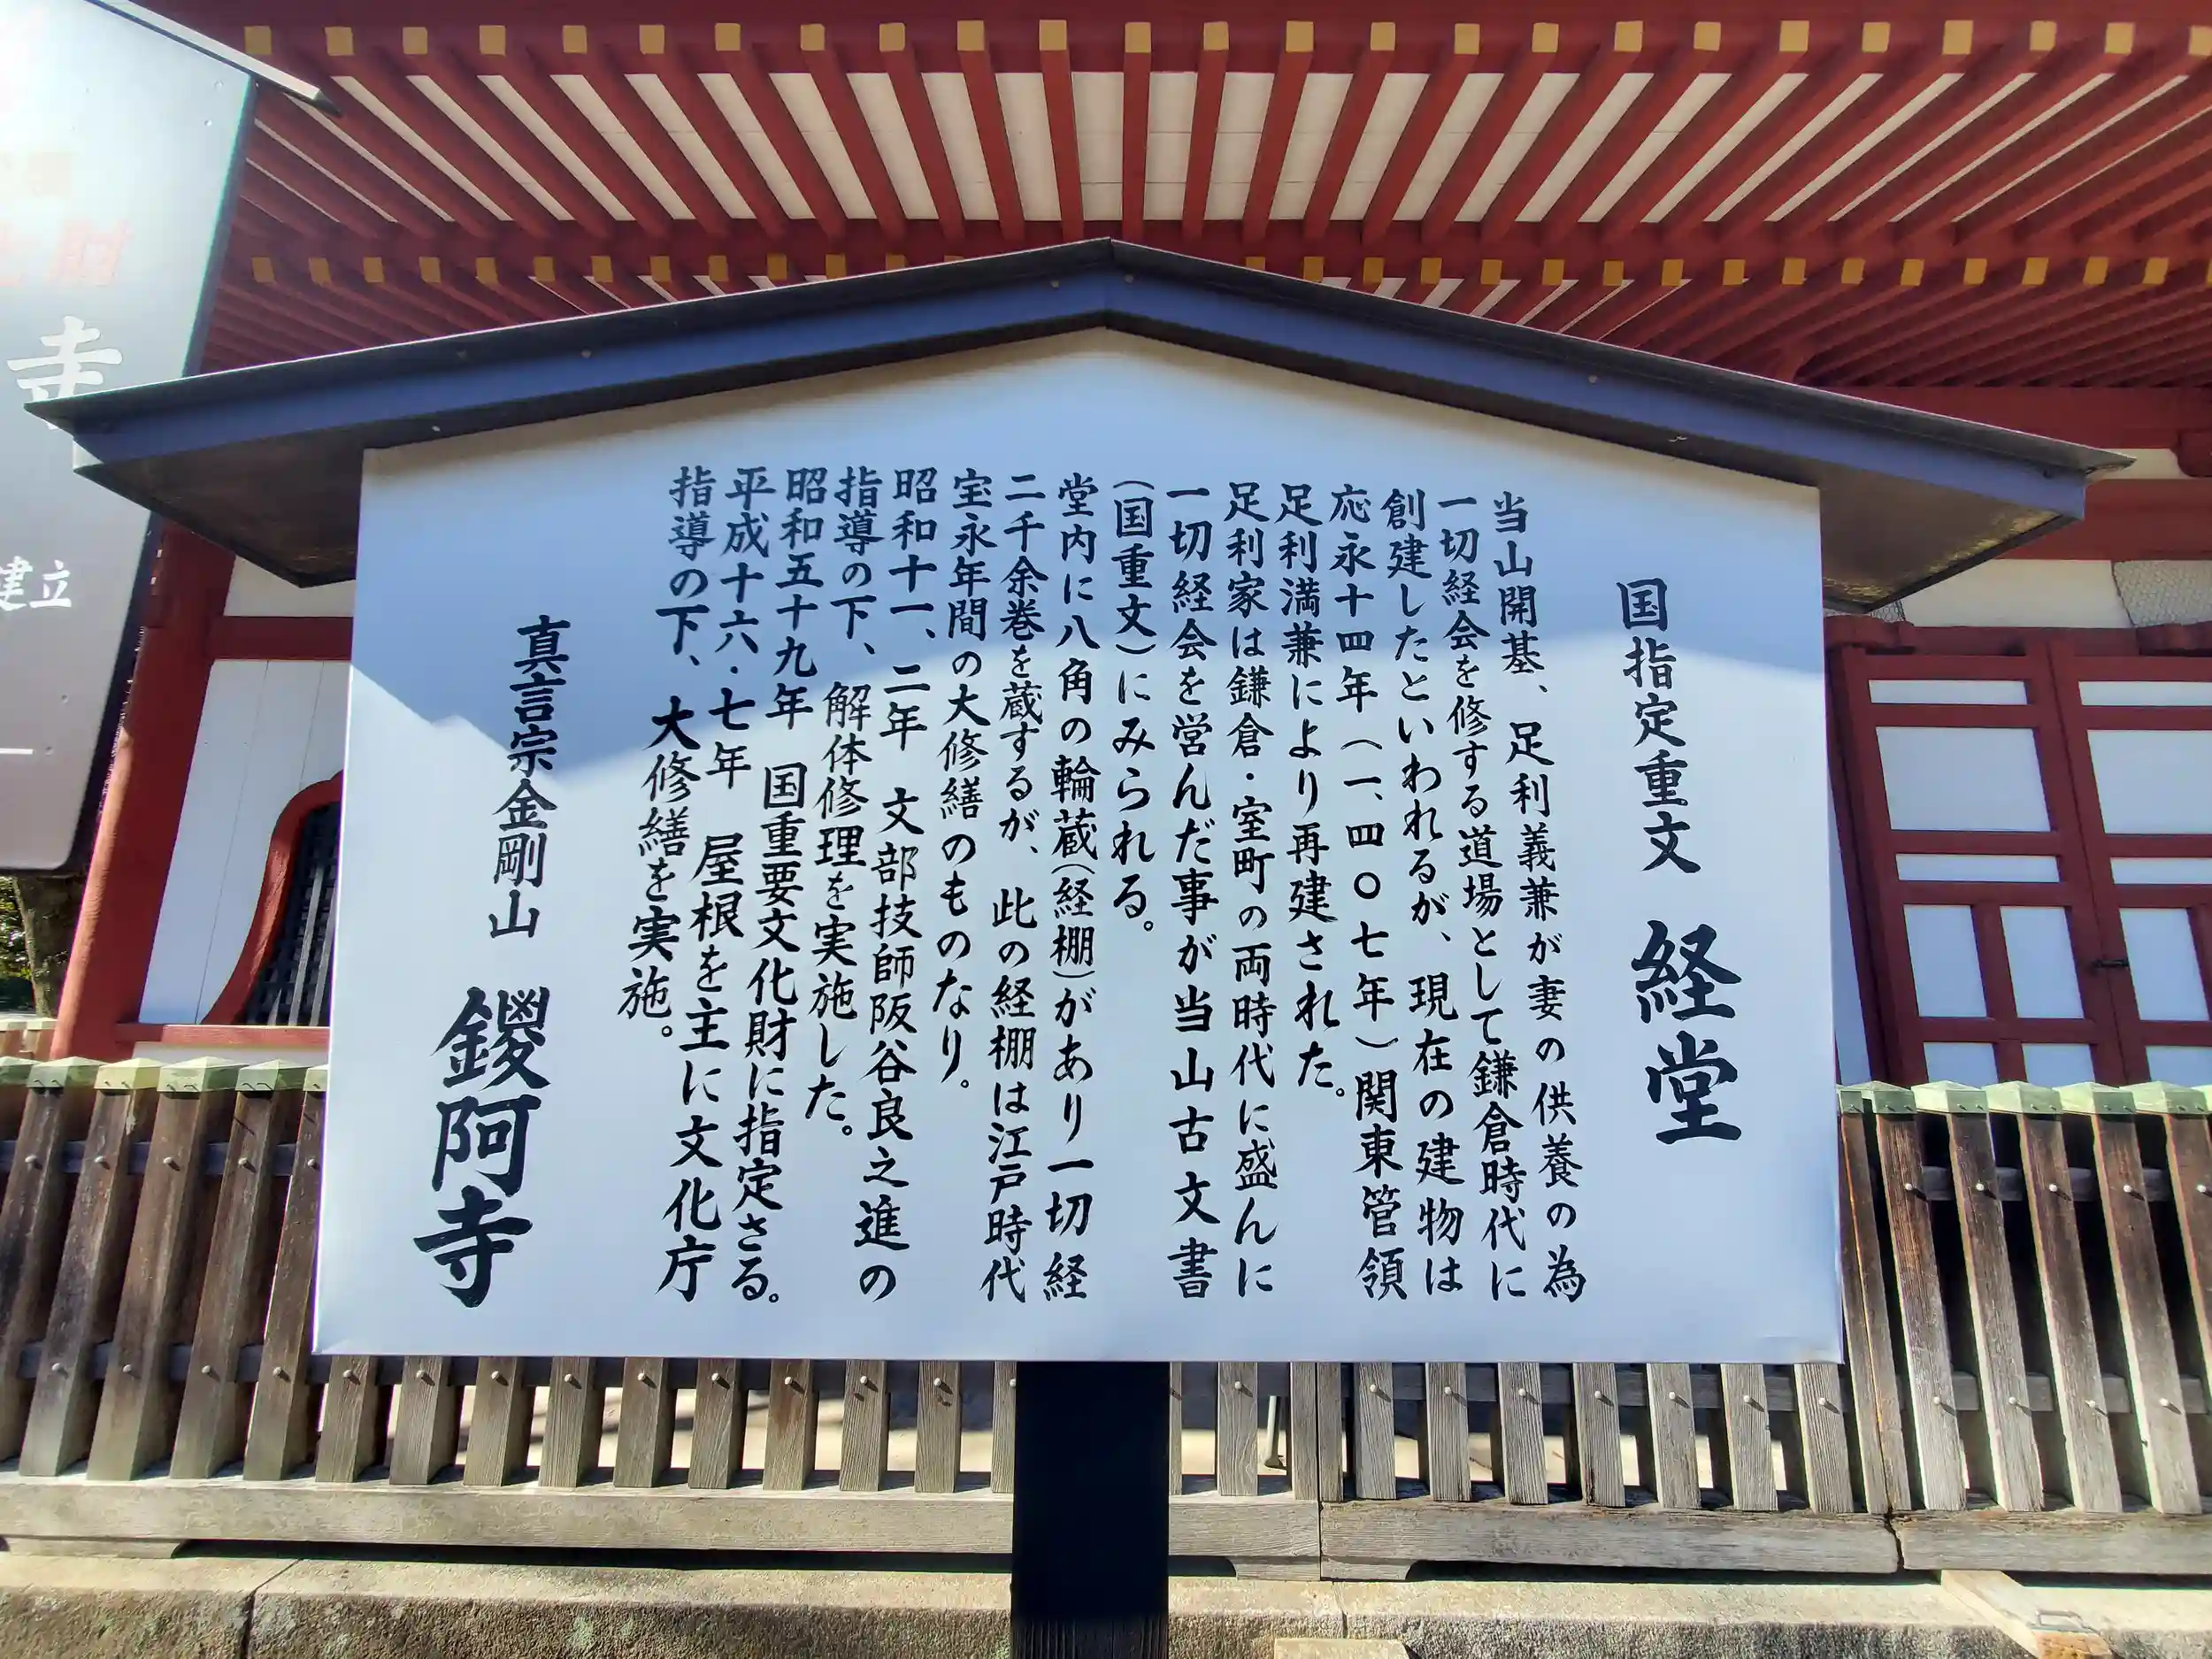 国指定重文 経堂
当山開基、足利義兼が妻の供養の為
一切経会を修する道場として鎌倉時代に
創建したといわれるが、現在の建物は
応永十四年(一、四〇七年)関東管領
足利満兼により再建された。
足利家は鎌倉・室町の両時代に盛んに
一切経会を営んだ事が当山古文書
(国重文)にみられる。
堂内に八角の輪蔵(経棚)があり一切経
二千余巻を蔵するが、此の経棚は江戸時代
宝永年間の大修繕のものなり。
昭和十一、二年 文部技師阪谷良之進の
指導の下、解体修理を実施した。
昭和五十九年 国重要文化財に指定さる。
平成十六・七年 屋根を主に文化庁
指導の下、大修繕を実施。
真言宗金剛山 鑁阿寺
財
寺
建立